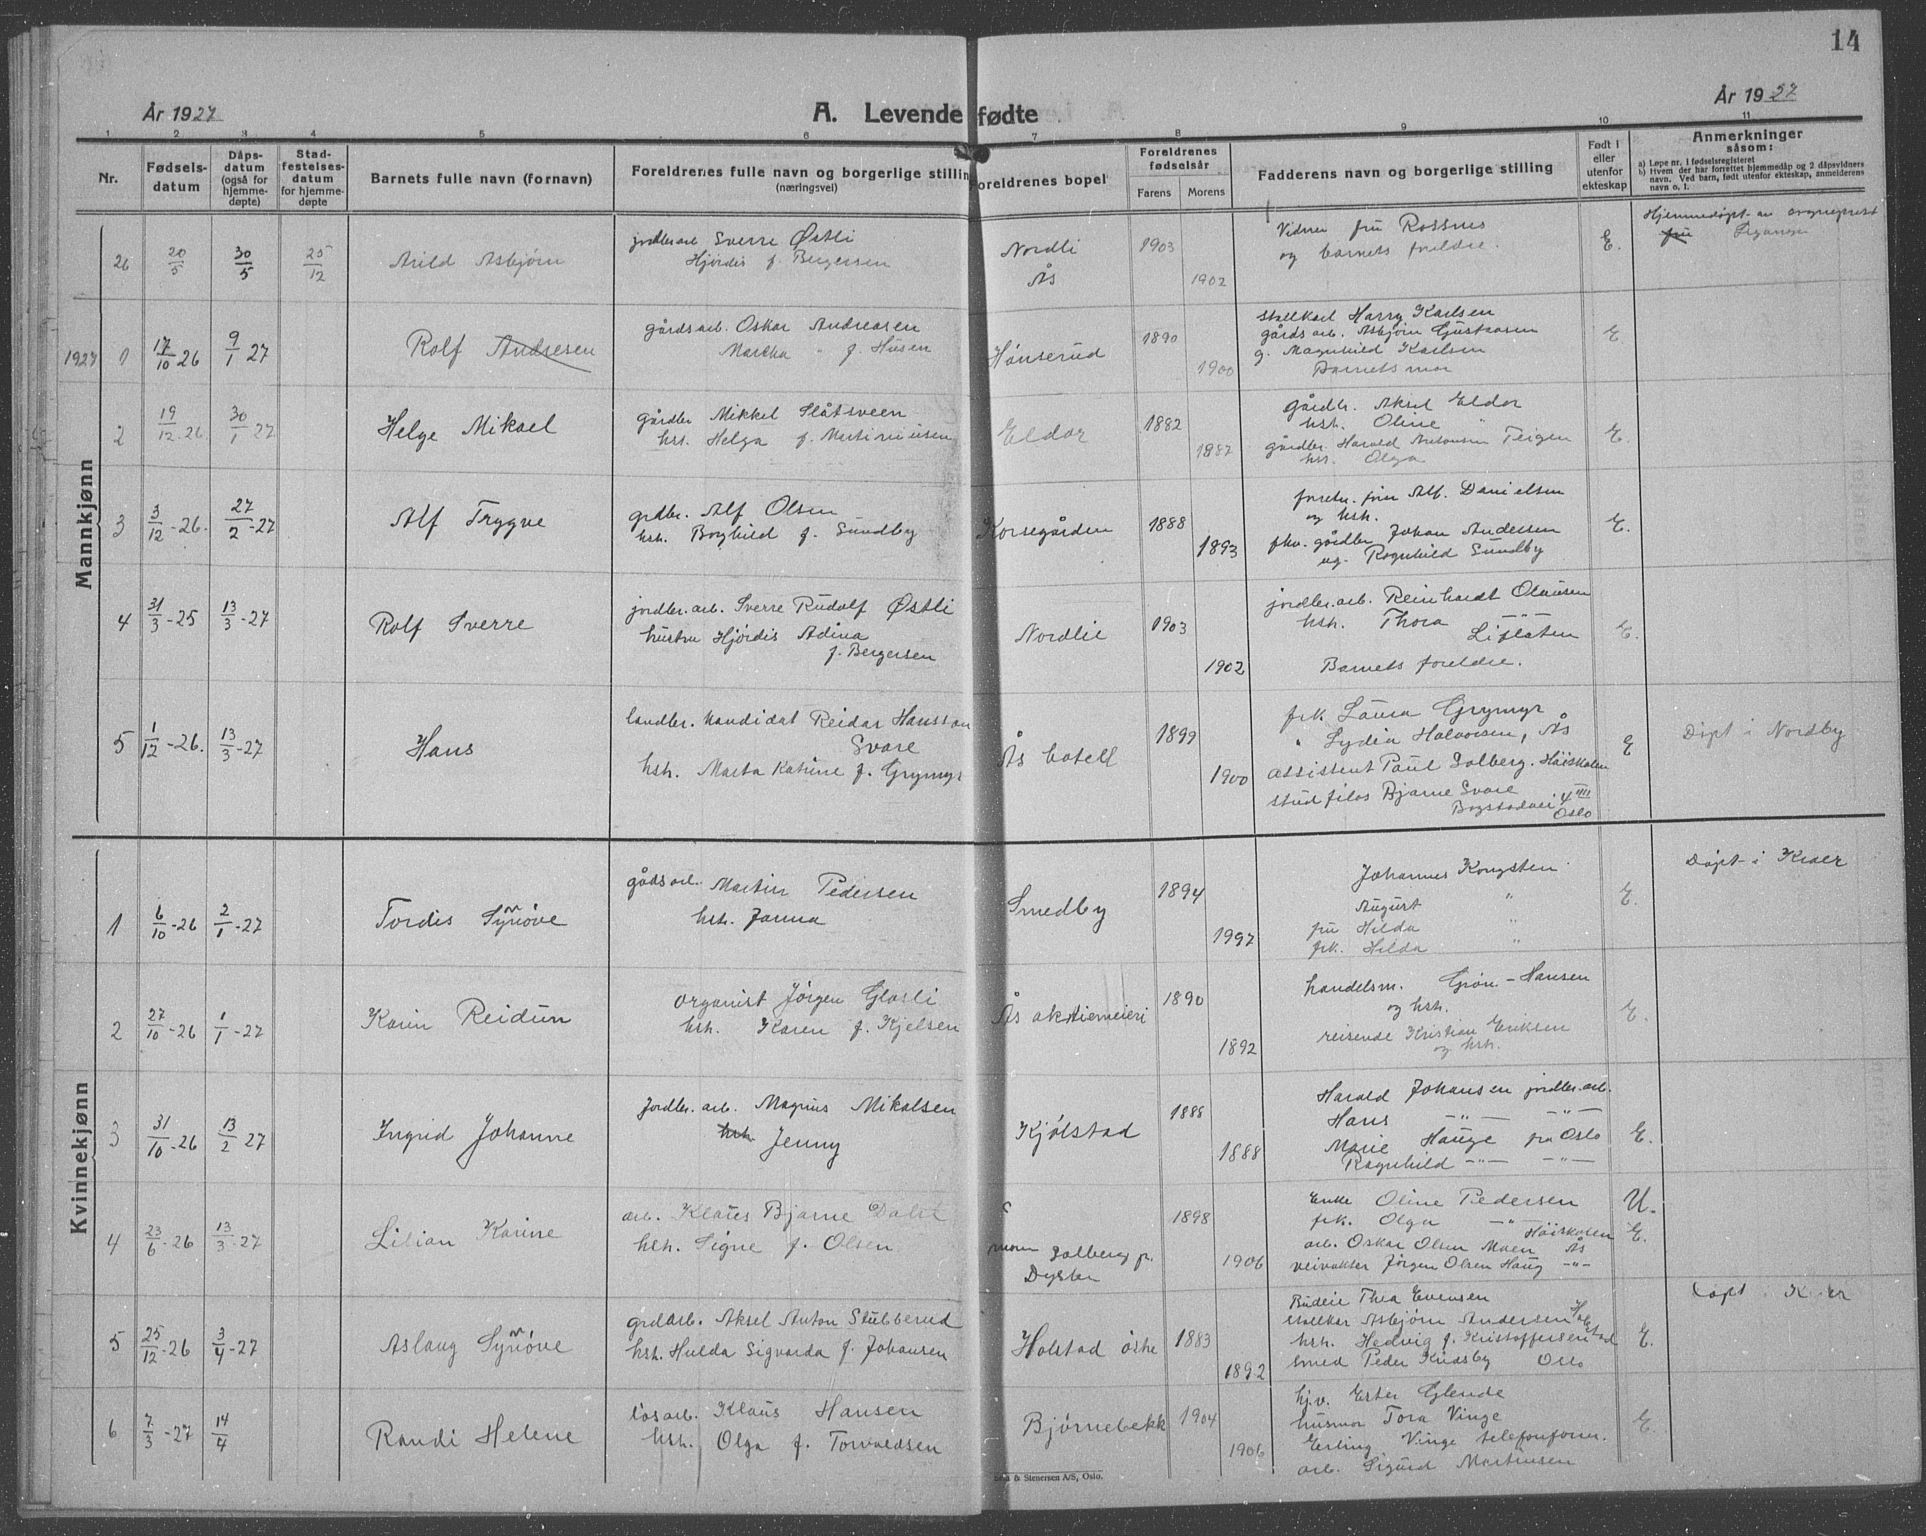 14
År 1927
A. Levende fødte
År 1927
1 2 3 4 5 6 7 8 9 10 11
Nr.
Fødsels-
datum
Dåps-
datum
(også for
hjemme-
døpte)
Stad-
festelses-
datum
for hjemme-
døpte
Barnets fulle navn (fornavn)
Foreldrenes fulle navn og borgerlige stilling
(næringsvei)
Foreldrenes bopel
Foreldrenes
fødselsår
Farens Morens
Fadderens navn og borgerlige stilling
Født i
eller
utenfor
ekteskap
Anmerkninger
såsom:
a) Løpe nr. i fødselsregisteret
b) Hvem der har forrettet hjemmedåp og 2 dåpsvidners
navn. Ved barn, født utenfor ekteskap, anmelderens
navn o. l.
Mannkjønn
26 20/5 30/5 25/12 Arild Asbjørn
jordbr.arb. Sverre Østli
Hjørdis f. Bergersen
Nordli
Ås
1903
1902
Vidner fru Rossnes
og barnets foreldre.
E.
Hjemmedøpt av sogneprest
fru
1927 1 17/10 26 9/1 27 Rolf Andresen
gårdsarb. Oskar Andreasen
Martha " f. Husen
Hønserud
1890
1900
stallkarl Harry Karlsen
gårdsarb. Asbjørn Gustavsen
g. Magnhild Karlsen
Barnets mor
E
2 19/12-26 30/1-27 Helge Mikael
gårdbr. Mikkel Slåtsveen
hst. Helga f. Martiniusen
Eldor
1882
1887
gårdbr. Aksel Eldor
hst. Oline "
gårdbr. Harald Antonsen Teigen
hst. Olga
E.
3 3/12-26. 27/2-27 Alf Trygve
grdbr. Alf Olsen
hst. Borghild f. Sundby
Korsegården
1888
1893
forretn. fører Alf. Danielsen
og hst.
fhv. gårdbr Johan Andersen
ug. Ragnhild Sundby
E.
4 31/3-25 13/3-27 Rolf Sverre
jordbr.arb. Sverre Rudolf Østli
hustru Hjørdis Adina
f. Bergersen
Nordlie
1903
1902
jordbr.arb. Reinhardt Olausen
hst. Thora -"-
Liflaten
Barnets foreldre.
E.
5 1/12-26. 13/3-27 Hans
landbr. kandidat Reidar Hansson
Svare
hst. Marta Katrine f. Grymyr
Ås hotell
1899
1900
frk. Laura Grymyr
" Lydia Halvorsen, Ås
assistent Paul Solberg. Høiskolen
stud filos Bjarne Svare
Bogstadvei 4 IIII
Oslo
E
Døpt i Nordby
Kvinnekjønn
1 6/10-26 2/1-27 Tordis Synnøve
gådsarb. Martin Pedersen
hst. Janna
Smedby
1894
1997
Johannes Kongsten
August "
fru Hilda "
frk. Hilda "
E.
Døpt i Kroer
2 27/10-26 1/1-27 Karin Reidun
organist Jørgen Glosli
hst. Karen f. Kjelsen
Ås aktiemeieri
1890
1892
handelsm. Grøn-Hansen
og hst.
reisende Kristian Eriksen
og hst.
E.
3 31/10-26 13/2 27 Ingrid Johanne
Jordbr. arb. Magnus Mikalsen
hst. Jenny
Kjølstad
1888
1888
Harald Johansen jordbr.arb.
Hans -"- -"-
Marie Hauge fru Oslo
Ragnhild -"- -"-
E.
4 23/6-26 13/3-27 Lilian Karine
arb. Klaus Bjarne Dahl
hst. Signe f. Olsen
moren Solberg pr.
Dyster
1898
1906
Enke Oline Pedersen
frk. Olga -"- Høiskolen
arb. Oskar Olsen Moen Ås
veivokter Jørgen Olsen Haug -"-
U.
E.
5 25/12-26 3/4-27 Aslaug Synnøve
grdarb. Aksel Anton Stubberud
hst. Hulda Sigvarda f. Johansen
Holstad østre
1883
1892
Budeie Thea Evensen
stallkar Asbjørn Andersen Holstad
hst. Hedvig f. Kristoffersen
smed Peder Krudsby Oslo
E.
Døpt i Kroer
6 7/3-27 14/4 Randi Helene
løsarb. Klaus Hansen
hst. Olga f. Torvaldsen
Bjørnebekk
1904
1906
hj.v. Ester Glende
husmor Tora Vinge
Erling Vinge telefonform.
arb. Sigurd Martinsen
E.
& Stenersen A/S, Oslo.